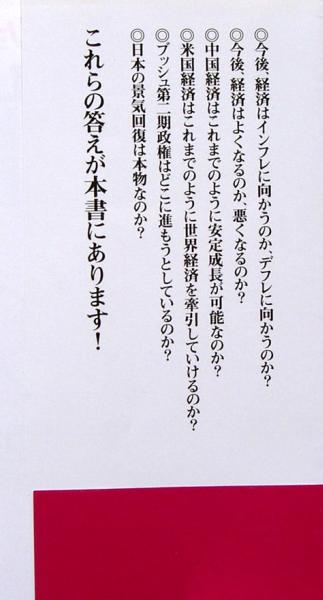 ◎今後、経済はインフレに向かうのか、デフレに向かうのか？
◎今後、経済はよくなるのか、悪くなるのか？
◎中国経済はこれまでのように安定成長が可能なのか？
◎米国経済はこれまでのように世界経済を牽引していけるのか？
◎ブッシュ第二期政権はどこに進もうとしているのか？
◎日本の景気回復は本物なのか？
これらの答えが本書にあります！